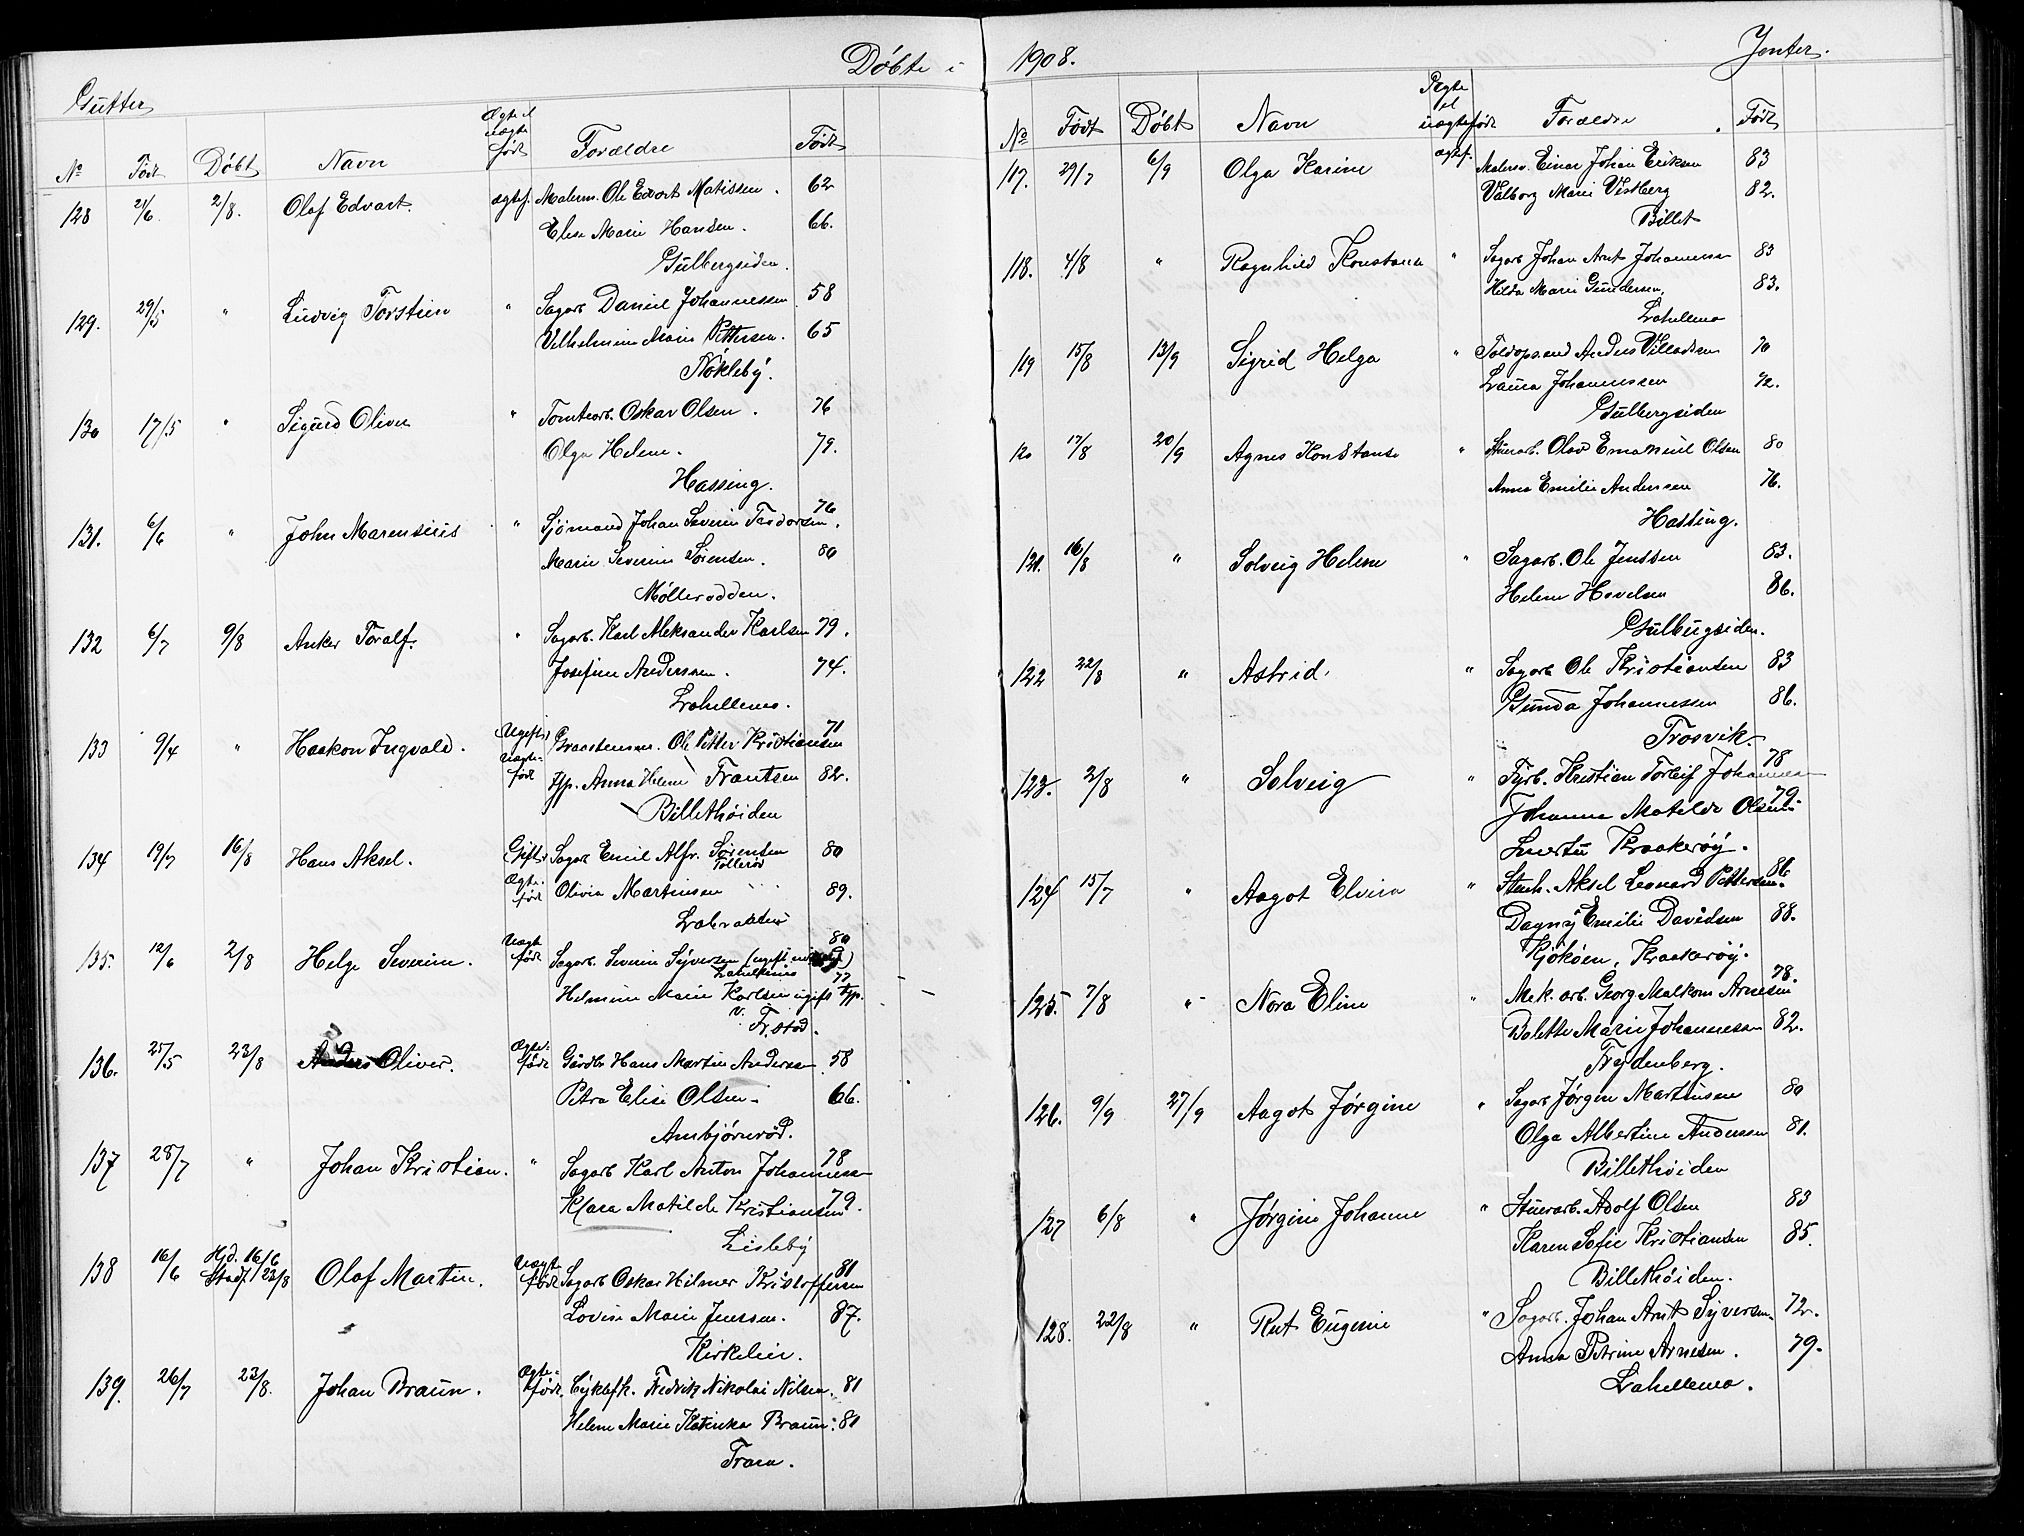 Døbte i 1908.
Gutter
No Født Døbt Navn Ægte el uægte født Forældre Født
128 21/6. 2/8. Olaf Edvart. ægtef. Malerm. Ole Edvart Matissen. 62
Elise Marie Hansen. 66.
Gulbergsiden.
129. 29/5 " Ludvig Torstein " Sagarb Daniel Johannessen 58
Vilhelmine Marie Pettersen. 65
Nökleby.
130 17/5 " Sigurd Oliver " Tomtearb. Oskar Olsen. 76
Olga Helene. 79.
Hassing.
131. 6/6 " John Marensius " Sjømand Johan Severin Teodorsen. 76
Marie Severine Sørensen. 80
Møllerodden.
132 6/7 9/8 Anker Toralf. " Sagarb. Karl Aleksander Karlsen 79.
Josefine Anderssen. 74.
Lahellemo.
133 9/4 " Haakon Ingvald. Ugifte Uægte-født Graastensm. Ole Petter Kristiansen 71
Tjp. Anna Helene Frantsen 82.
Billethöiden
134 19/7 16/8 Hans Aksel. Gifte Ægte-født Sagarb Emil Alfr. Sørensen 80
Tollerød
Olivia Martinsen 89.
135. 12/6 2/8 Helge Severin. Uægte født Sagarb. Severin Syversen (ugift 80
Lahellemo
Helmine Marie Karlsen ugift Tjp. 77
v. Fr.stad.
136. 25/5 23/8 Oliver. Ægte-født Gårdbr Hans Martin Andersen 58
Petra Elise Olsen 66.
Ambjörnröd.
137 28/7 " Johan Kristian. " Sagarb Karl Anton Johannessen 78
Klara Matilde Kristiansen 79.
Lisleby
138 16/6 Hjd. 16/6 Stadf. 23/8 Olaf Martin. Uægte født Sagarb Oskar Hilmer Kristoffersen 81
Lovise Marie Jenssen. 87.
Kirkelien.
139. 26/7 23/8. Johan Braun. Ægte-født. Cyklefh. Fredrik Nikolai Nilsen. 81
Helene Marie Katinka Braun. 81
Trara.
Jenter.
No Født Døbt Navn Ægte el uægtefødt Forældre Født
117. 29/7 6/9 Olga Karine ægtef. Malersv. Einar Johan Eriksen 83
Valborg Marie Vestberg 82.
Billet
118. 4/8 " Ragnhild Konstance " Sagarb Johan Arnt Johannessen 83
Hilda Marie Gundersen. 83.
Lahellemo
119 15/8 13/9 Sigrid Helga " Toldops.and Anders Villadsen 70
Laura Johannessen 72.
Gulbergsiden
120 17/8 20/9 Agnes Konstanse " Stuerarb. Olav Emanuel Olsen 80
Anna Emilie Andersen 76.
Hassing.
121. 16/8 " Solveig Helene " Sagarb. Ole Jenssen 83.
Helene Hovelsen 86.
Gulbergsiden.
122 22/8 " Astrid. " Sagarb Ole Kristiansen 83
Gunda Johannessen 86.
Trosvik.
123. 2/8 " Solveig " Fyrb. Kristian Torleif Johannessen 78
Johanne Matilde Olsen 79
Smertu Kraakerøy.
124 15/7 " Aagot Elvira " Stenh. Aksel Leonard Pettersen. 86
Dagny Emilie Davidsen 88.
Kjøkøen, Kraakerøy.
125. 7/8 " Nora Eline " Mek. arb. Georg Malkom Arnesen 78.
Bolette Marie Johannessen 82.
Frydenberg.
126. 9/9 27/9 Aagot Jørgine " Sagarb Jørgen Martinsen 80
Olga Albertine Anderssen 81.
Billethöiden
127 6/8 " Jørgine Johanne " Stuerarb. Adolf Olsen 83
Karen Sofie Kristiansen 85.
Billethöiden.
128. 22/8 " Rut Eugenie " Sagarb. Johan Arnt Syversen. 72.
Anna Petrine Arnesen. 79.
Lahellemo.